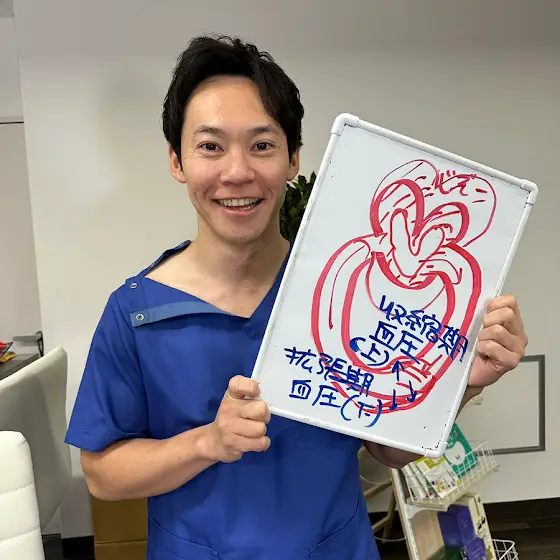 心ぞー
収縮期
血圧
(上)
拡張期
血圧(下)